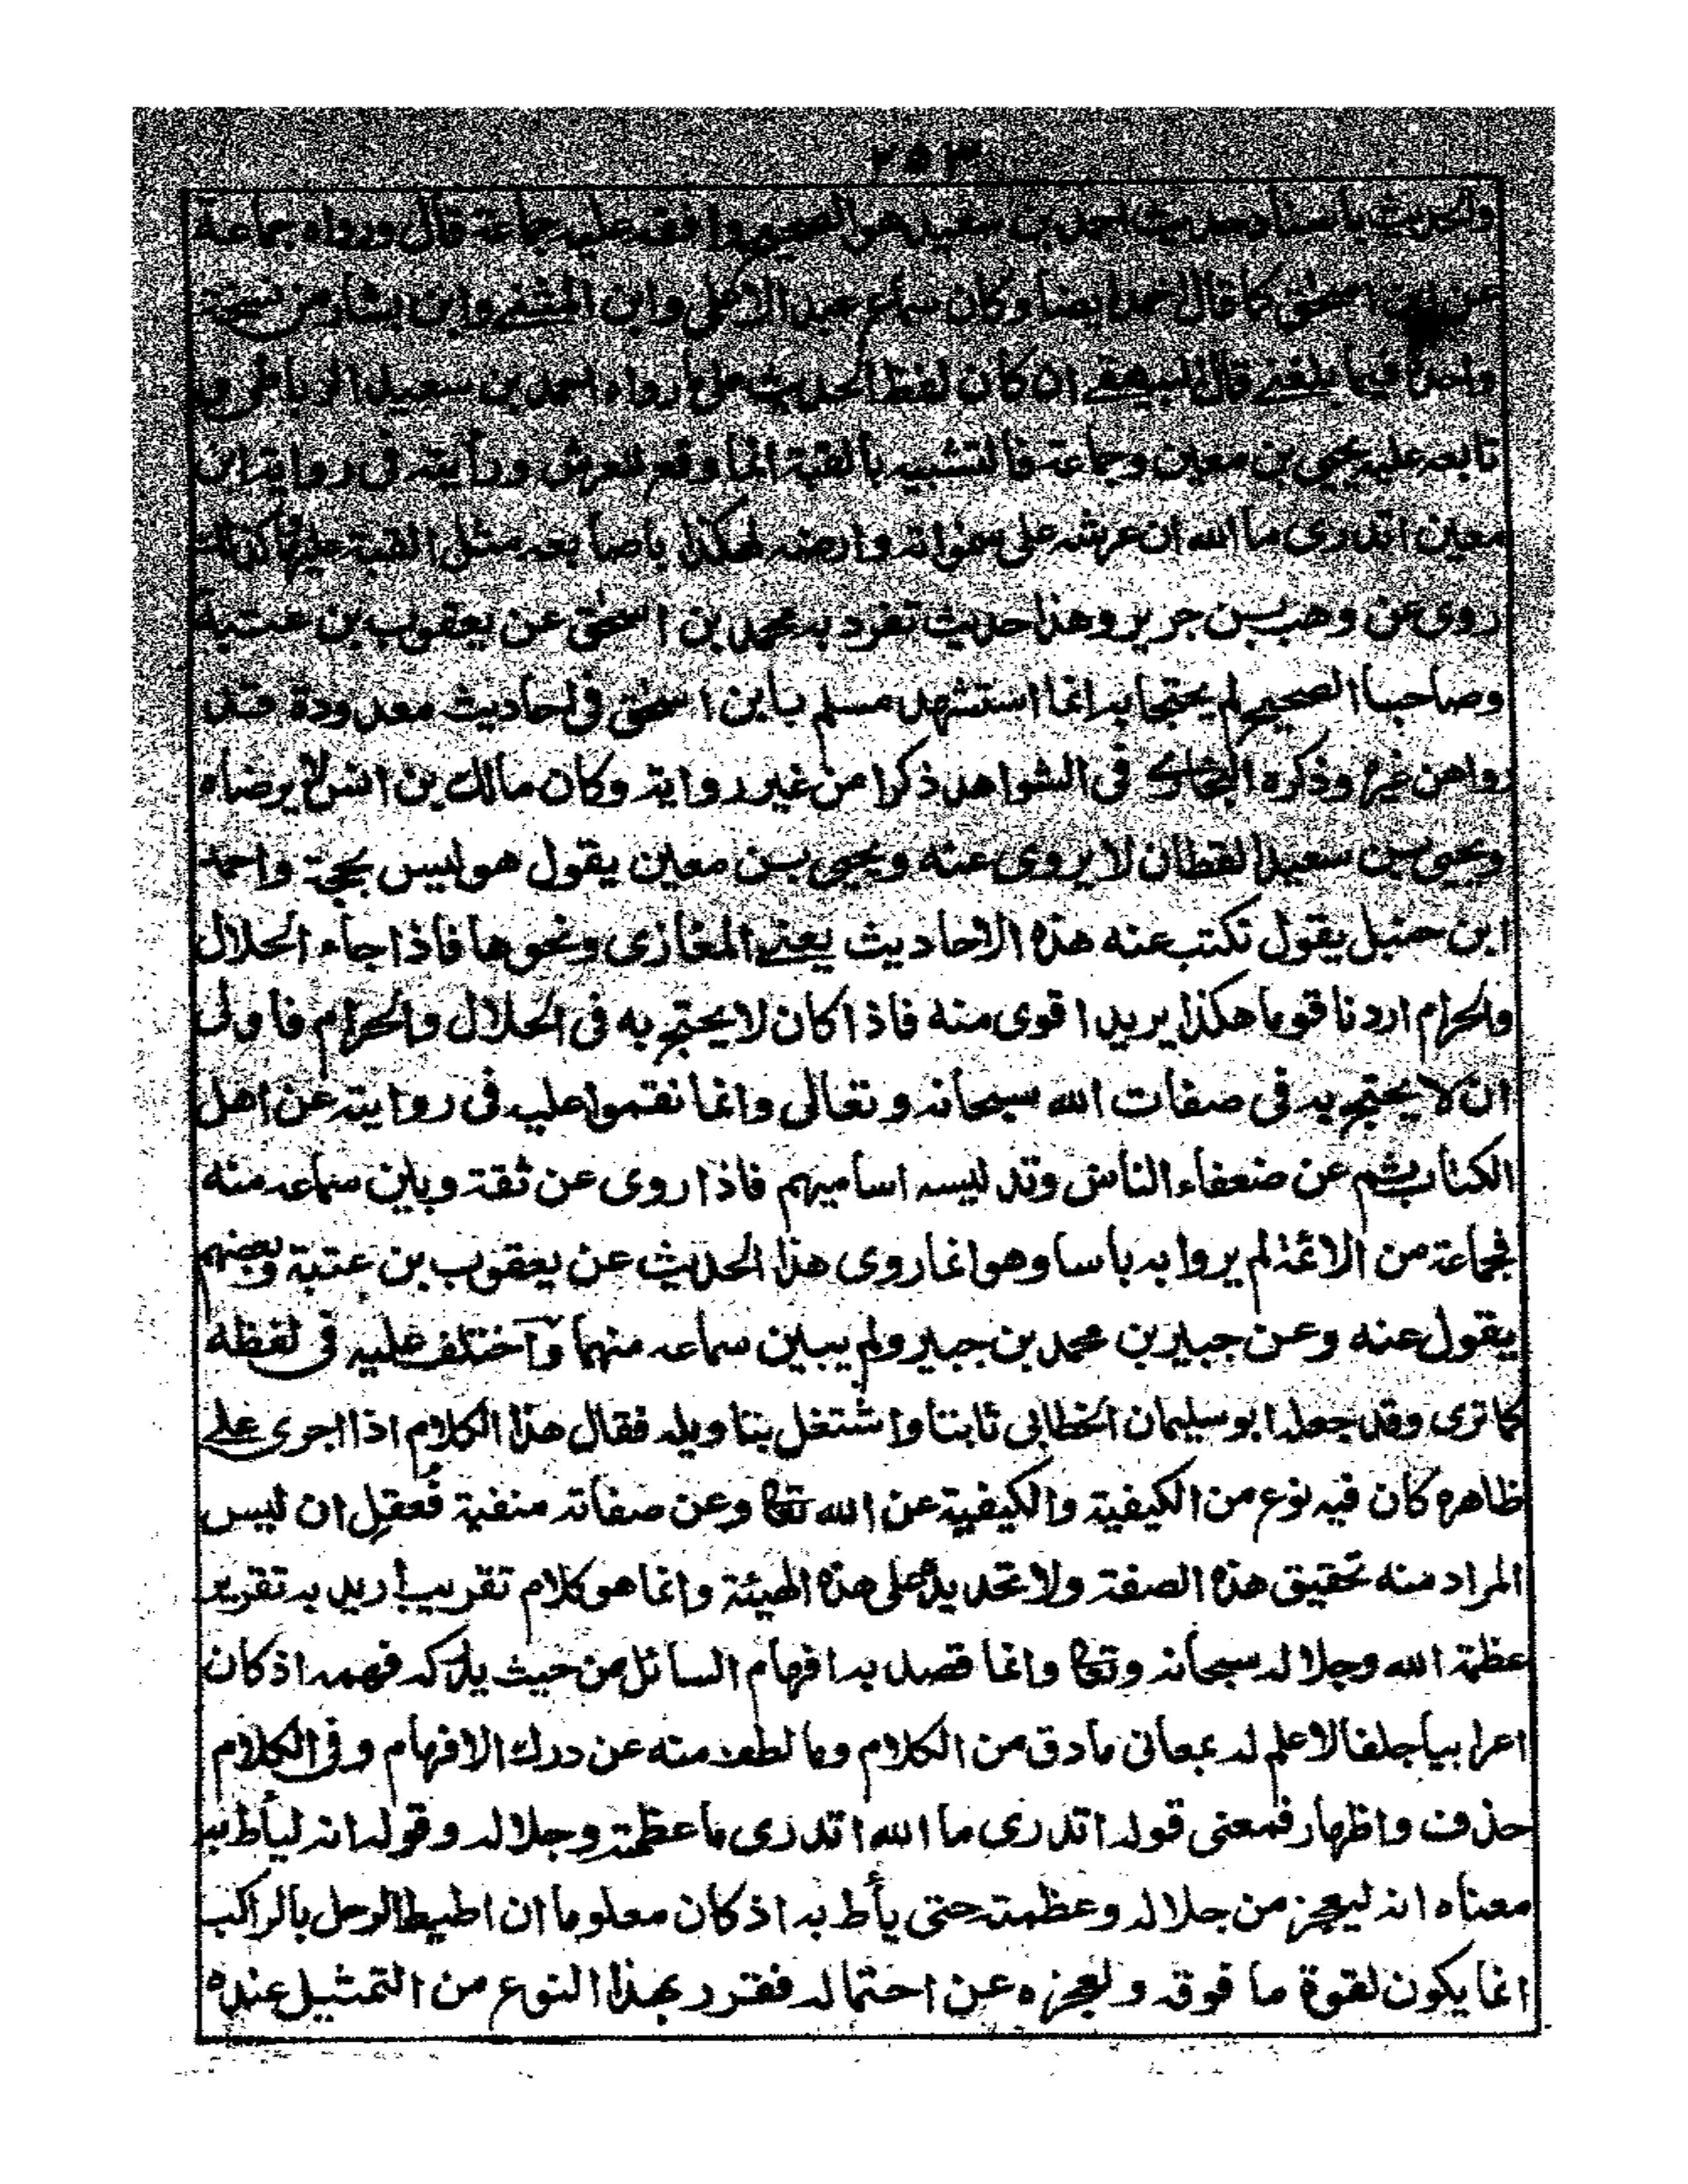 ٢٥٣
والحديث باسناد حديث احمد بن سعيد هو الصحيح وافقه عليه جماعة قال ورواه جماعة
عن ابن اسحق كما قال احمد ايضا وكان سماع عبد الاعلى وابن المثنى وابن بشار من نسخة
واحدة فيما بلغني قال البيهقي ان كان لفظ الحديث على ما رواه احمد بن سعيد الرباطي و
تابعه عليه يحيى بن معين وجماعة فالتشبيه بالقبة انما وقع للعرش ورأيته في رواية ابن
معين اتدرى ما الله ان عرشه على سمواته وارضه لهكذا باصابعه مثل القبة عليها كذلك
روى عن وهب بن جرير وهذا حديث تفرد به محمد بن اسحق عن يعقوب بن عتبة
وصاحبا الصحيح لم يحتجا به انما استشهد مسلم بابن اسحق في احاديث معدودة قد
رواهن غيره وذكره البخارى في الشواهد ذكرا من غير رواية وكان مالك بن انس لا يرضاه
ويحيى بن سعيد القطان لا يروى عنه ويحيى بن معين يقول هو ليس بحجة واحمد
ابن حنبل يقول تكتب عنه هذه الاحاديث يعنى المغازى ونحوها فاذا جاء الحلال
والحرام اردنا قوما هكذا يريد اقوى منه فاذا كان لا يحتج به فى الحلال والحرام فاولى
ان لا يحتج به فى صفات الله سبحانه وتعالى وانما نقموا عليه فى روايته عن اهل
الكتاب ثم عن ضعفاء الناس وتدليسه اساميهم فاذا روى عن ثقة وبين سماعه منه
فجماعة من الائمة لم يروا به باسا وهو انما روى هذا الحديث عن يعقوب بن عتبة وبعضهم
يقول عنه وعن جبير بن محمد بن جبير ولم يبين سماعه منهما واختلف عليه فى لفظه
كما ترى وقد جعله ابو سليمان الخطابى ثابتا واشتغل بتاويله فقال هذا الكلام اذا اجرى على
ظاهره كان فيه نوع من الكيفية والكيفية عن الله تعا وعن صفاته منفية فعقل ان ليس
المراد منه تحقيق هذه الصفة ولا تحديده على هذه الهيئة وانما هو كلام تقريب أريد به تقرير
عظمة الله وجلاله سبحانه وتعا وانما قصد به افهام السائل من حيث يدركه فهمه اذ كان
اعرابيا جلفا لا علم له بمعانى ما دق من الكلام وما لطف منه عن درك الافهام وفى الكلام
حذف واظهار فمعنى قوله اتدرى ما الله اتدرى ما عظمته وجلاله وقوله انه ليأط به
معناه انه ليعجز من جلاله وعظمته حتى يأط به اذ كان معلوما ان اطيط الرحل بالراكب
انما يكون لقوة ما فوقه ولعجزه عن احتماله فقرر بهذا النوع من التمثيل عنده